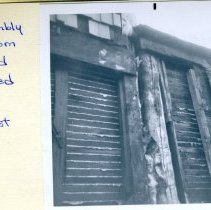 mbly
om
d
ed
st